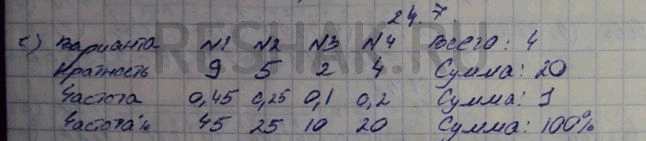 24.7
с) Варианта №1 №2 №3 №4 Всего: 4
Кратность 9 5 2 4 Сумма: 20
Частота 0,45 0,25 0,1 0,2 Сумма: 1
Частота % 45 25 10 20 Сумма: 100%
RESHAK.RU